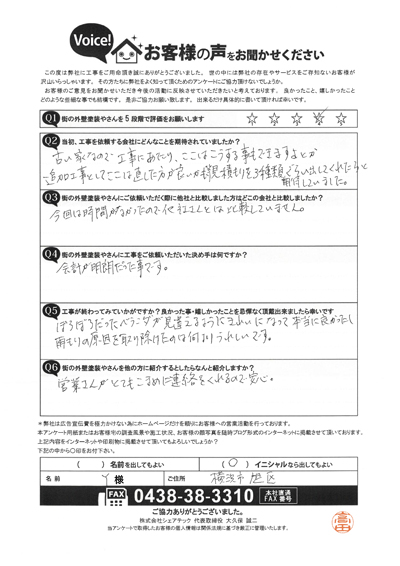 Voice!
お客様の声をお聞かせください
この度は弊社に工事をご用命頂き誠にありがとうございました。世の中には弊社の存在やサービスをご存知ないお客様が
沢山いらっしゃいます。その方たちに弊社をよく知って頂くためのアンケートにご協力頂けないでしょうか。
お客様のご意見をお聞かせいただき今後の活動に反映させていただきたいと考えております。良かったこと、嬉しかったこと
どのような些細な事でも結構です。是非ご協力お願い致します。出来るだけ具体的に書いて頂ければ幸いです。
Q1 街の外壁塗装やさんを5段階で評価をお願いします
Q2 当初、工事を依頼する会社にどんなことを期待されていましたか?
古い家なので工事にあたり、ここはこうする事もできますよとか
追加工事としてここは直した方が良いかも 見積もりを3種類ぐらい出してくれたらと
期待していました。
Q3 街の外壁塗装やさんにご依頼いただく際に他社と比較しました方はどこの会社と比較しましたか?
今回は時間がなかったので他社さんとは比較していません。
Q4 街の外壁塗装やさんに工事をご依頼いただいた決め手は何ですか?
会計が明朗だった事です。
Q5 工事が終わってみていかがですか?良かった事・嬉しかったことを忌憚なく頂戴出来ましたら幸いです
ぼろぼろだったベランダが見違えるようにきれいになって本当に良かったし
雨もりの原因を取り除けたのは何よりうれしいです。
Q6 街の外壁塗装やさんを他の方に紹介するとしたらなんと紹介しますか?
営業さんがとてもこまめに連絡をくれるので安心。
*弊社は広告宣伝費を極力かけない為にホームページだけを頼りにお客様への営業活動を行っております。
本アンケート用紙またはお客様宅の調査風景や施工状況、お客様の顔写真を随時ブログ形式のインターネットに掲載させて頂いております。
上記内容をインターネットや印刷物に掲載させて頂いてもよろしいでしょうか?
下記の中から〇印をお付け下さい。
( ) 名前を出してもよい (〇) イニシャルなら出してもよい
名前 Y 様 ご住所 横浜市 旭区
FAX 0438-38-3310 本社直通 FAX番号
ご協力ありがとうございました。
株式会社シェアテック 代表取締役 大久保 誠二
当アンケートで取得したお客様の個人情報は関係法規に基づき厳正に管理いたします。